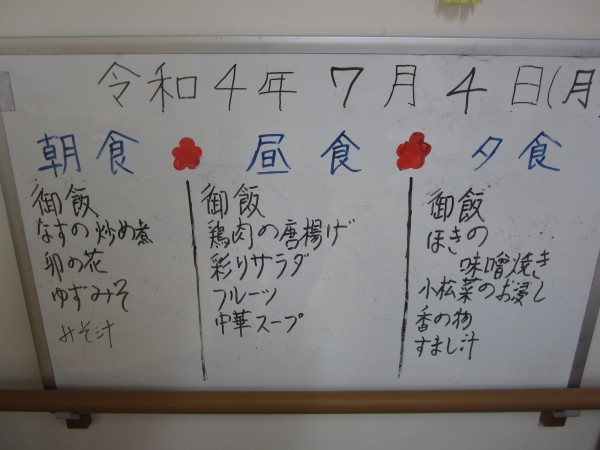 令和4年7月4日(月)
朝食
御飯
なすの炒め煮
卯の花
ゆずみそ
みそ汁
昼食
御飯
鶏肉の唐揚げ
彩りサラダ
フルーツ
中華スープ
夕食
御飯
ほきの
味噌焼き
小松菜のお浸し
香の物
すまし汁